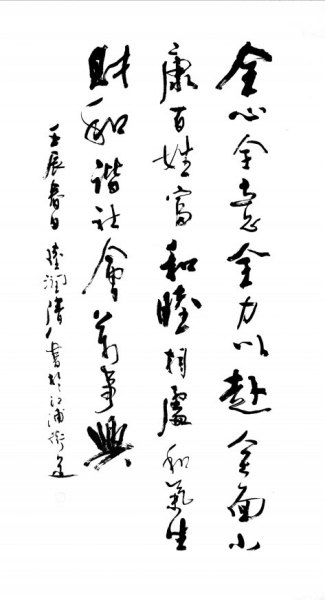 全心全意全力以赴全面小
康百姓富和睦相處和氣生
財和諧社會萬事興
壬辰春日陸潤清書於江浦街道